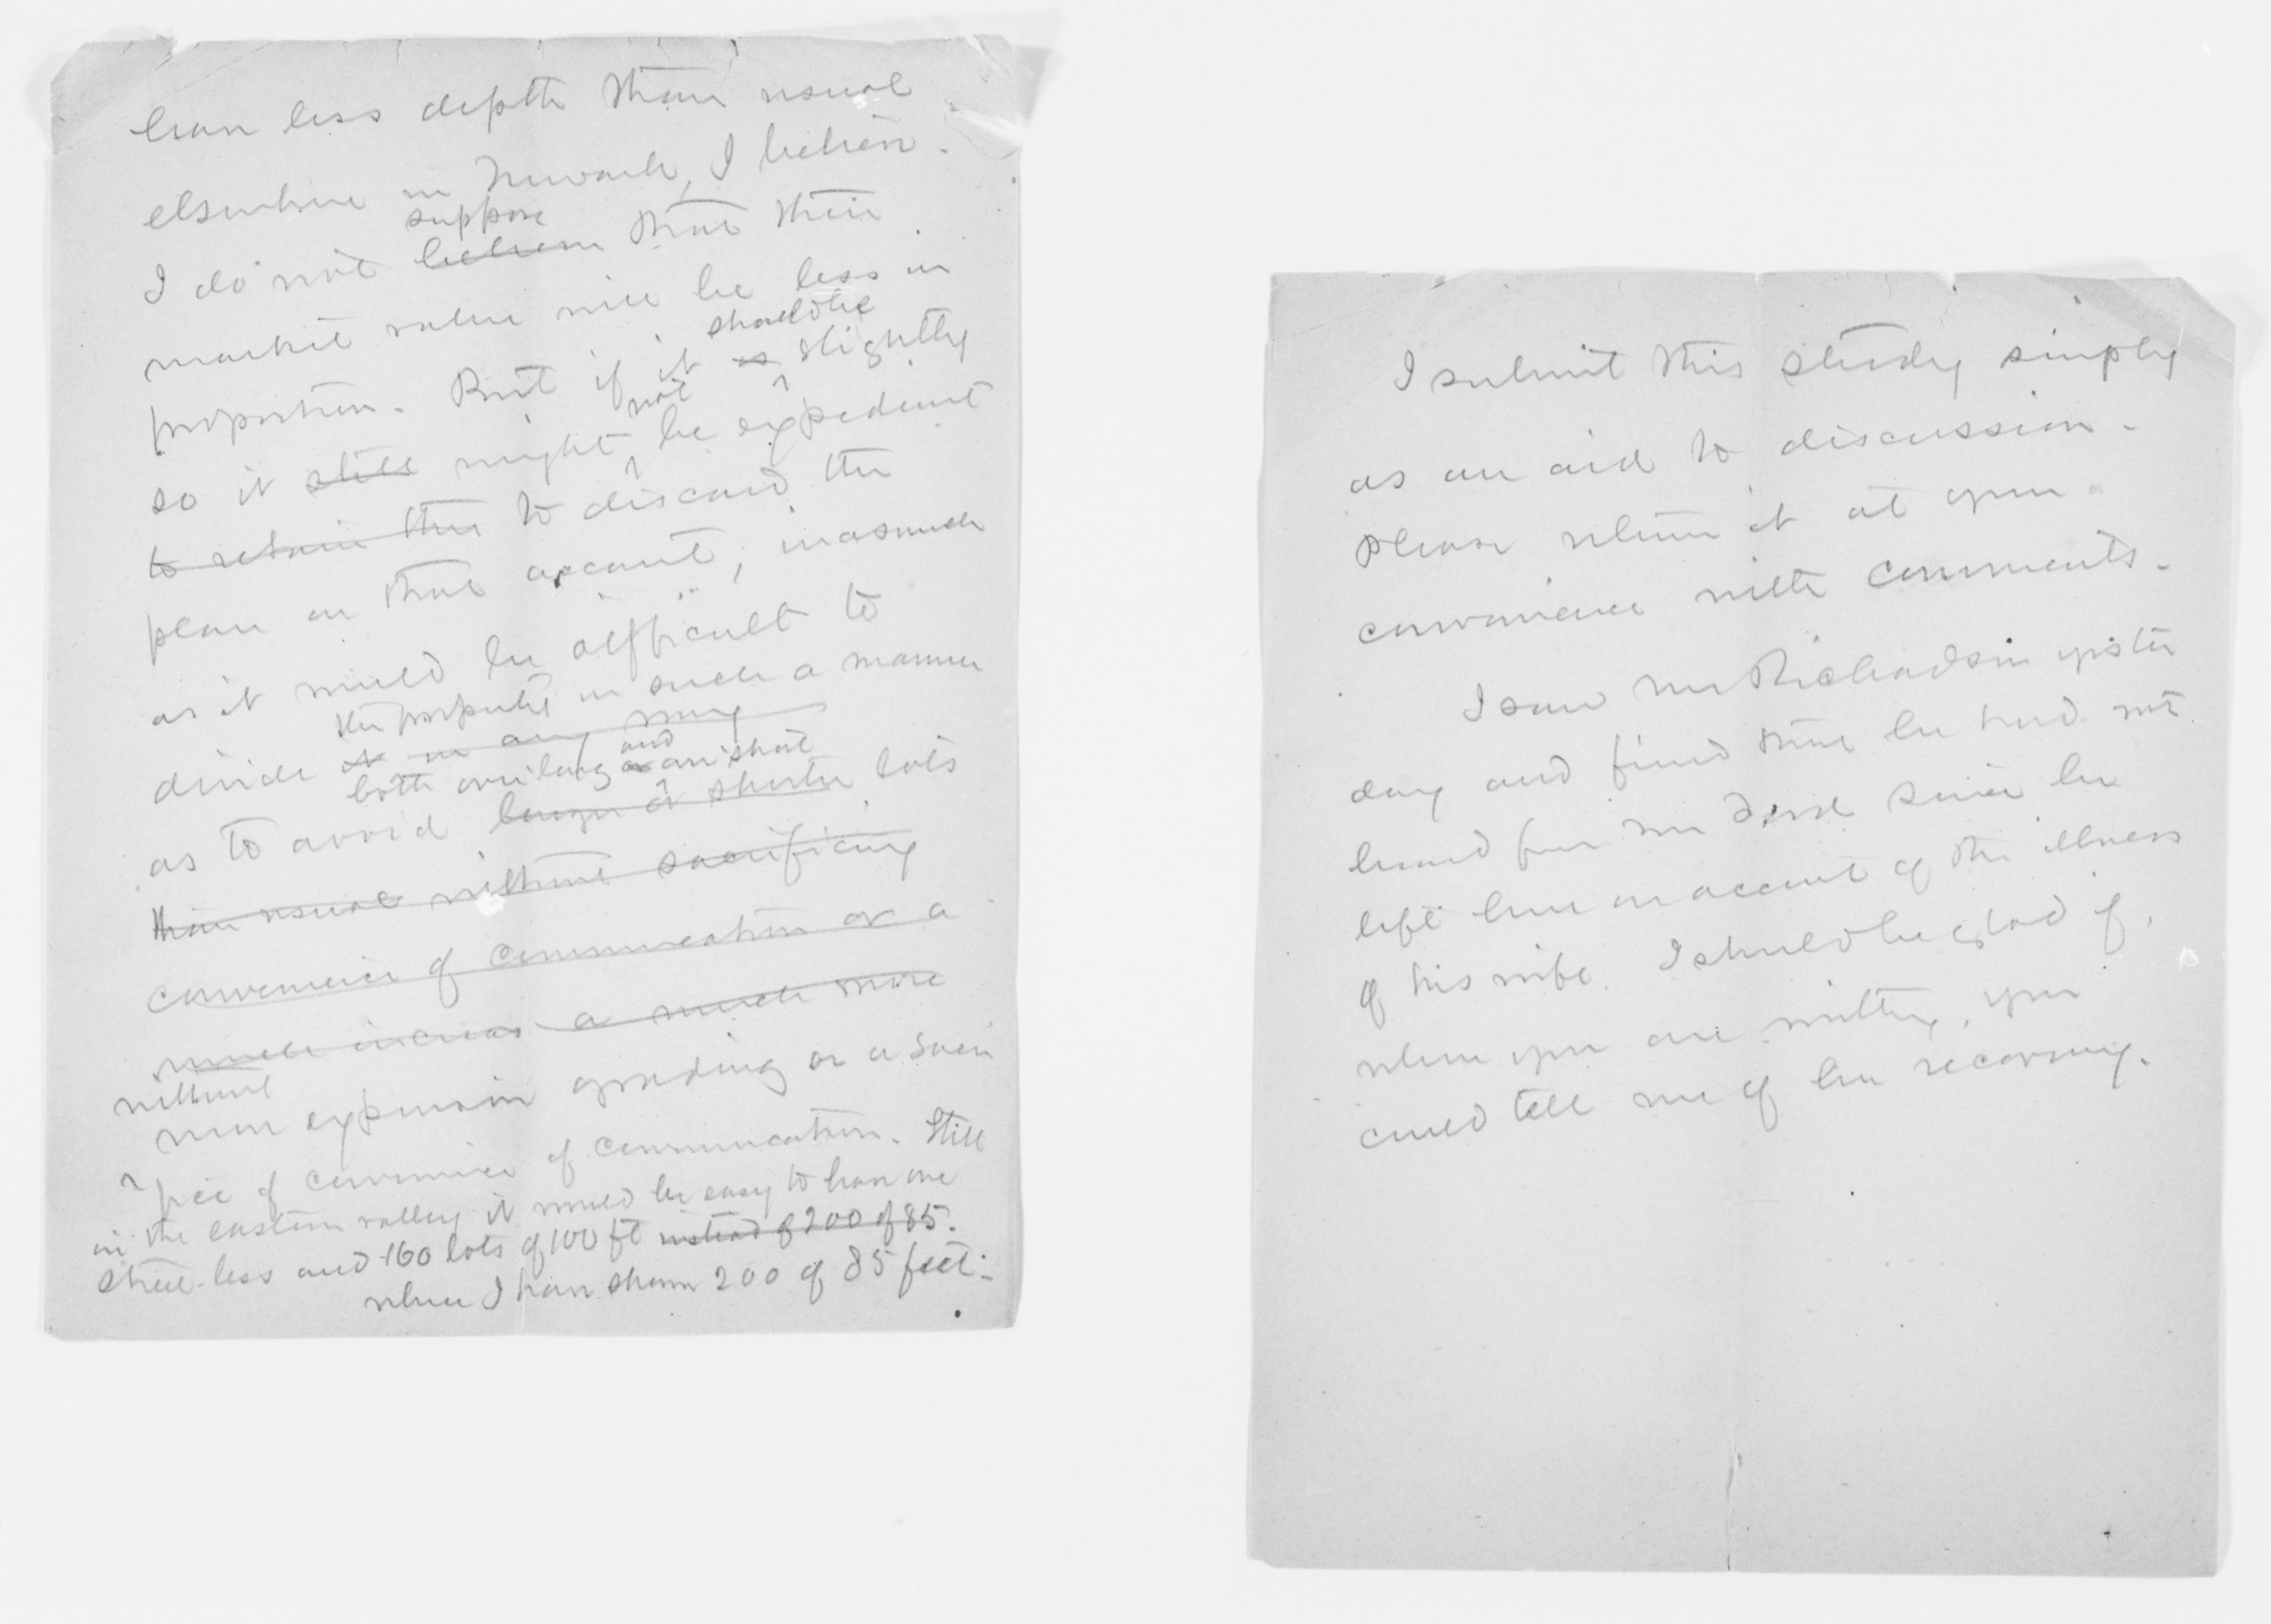 have less depth than usual
elsewhere in Newark, I believe.
suppose
I do not believe that their
market value will be less in
should be
proportion. But if it is slightly
not
so it still might be expedient
to retain the to discard the
plan on that account, inasmuch
as it would be difficult to
the property in such a manner
divide it in any way
both over long and or over short
as to avoid longer or shorter lots
than usual without sacrificing
convenience of communication or a
much increas a much more
without
more expensive grading or a sacri
fice of convenience of communication. Still
in the eastern valley it would be easy to have one
street less and 160 lots of 100 ft instead of 200 of 85.
where I have shown 200 of 85 feet.
I submit this study simply
as an aid to discussion.
Please return it at your
convenience with comments.
I saw Mr Richardson yester
day and find that he had not
heard from Mr since he
left here on account of the illness
of his wife. I should be glad if,
when you are writing, you
could tell me of her recovery.